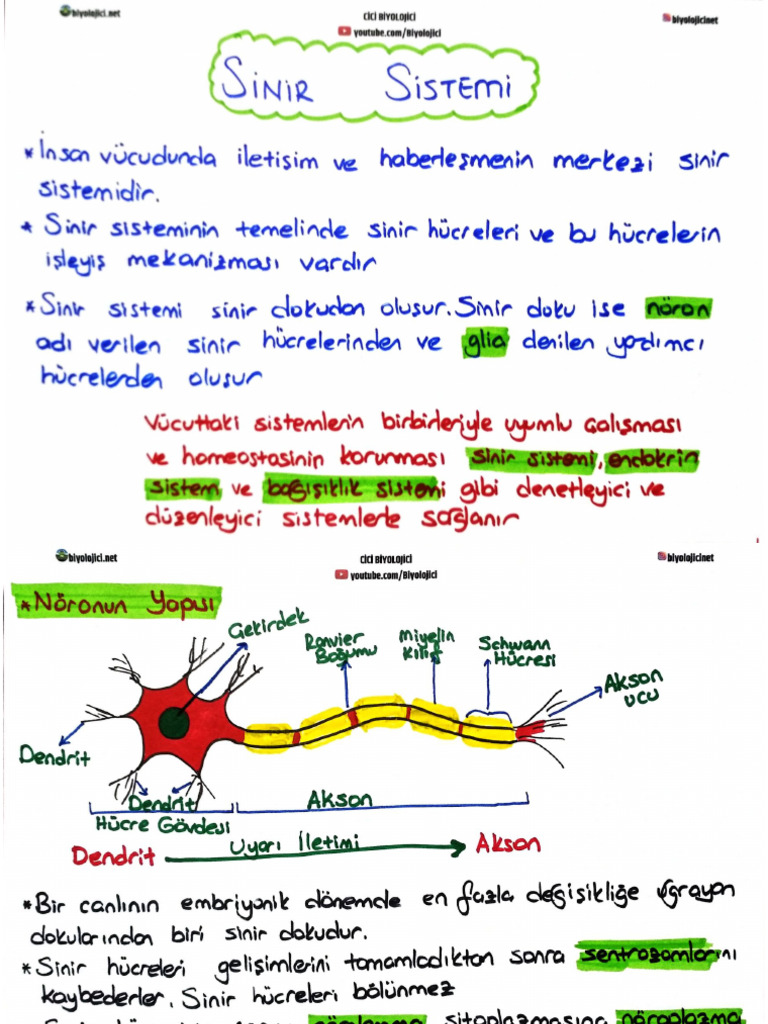 biyolojici.net
CİCİ BİYOLOJİCİ
youtube.com/Biyolojici
biyolojicinet
SİNİR SİSTEMİ
* İnsan vücudunda iletişim ve haberleşmenin merkezi sinir
sistemidir.
* Sinir sisteminin temelinde sinir hücreleri ve bu hücrelerin
işleyiş mekanizması vardır
* Sinir sistemi sinir dokudan oluşur. Sinir doku ise nöron
adı verilen sinir hücrelerinden ve glia denilen yardımcı
hücrelerden oluşur
Vücuttaki sistemlerin birbirleriyle uyumlu çalışması
ve homeostasinin korunması sinir sistemi, endokrin
sistem ve bağışıklık sistemi gibi denetleyici ve
düzenleyici sistemlerle sağlanır
biyolojici.net
CİCİ BİYOLOJİCİ
youtube.com/Biyolojici
biyolojicinet
* Nöronun Yapısı
Çekirdek
Ranvier
Boğumu
Miyelin
Kılıf
Schwann
Hücresi
Akson
ucu
Dendrit
Dendrit
Hücre Gövdesi
Akson
Dendrit Uyarı İletimi Akson
* Bir canlının embriyonik dönemde en fazla değişikliğe uğrayan
dokularından biri sinir dokudur.
* Sinir hücreleri gelişimlerini tamamladıktan sonra sentrozomlarını
kaybederler. Sinir hücreleri bölünmez
sitoplazmasına nöroplazma